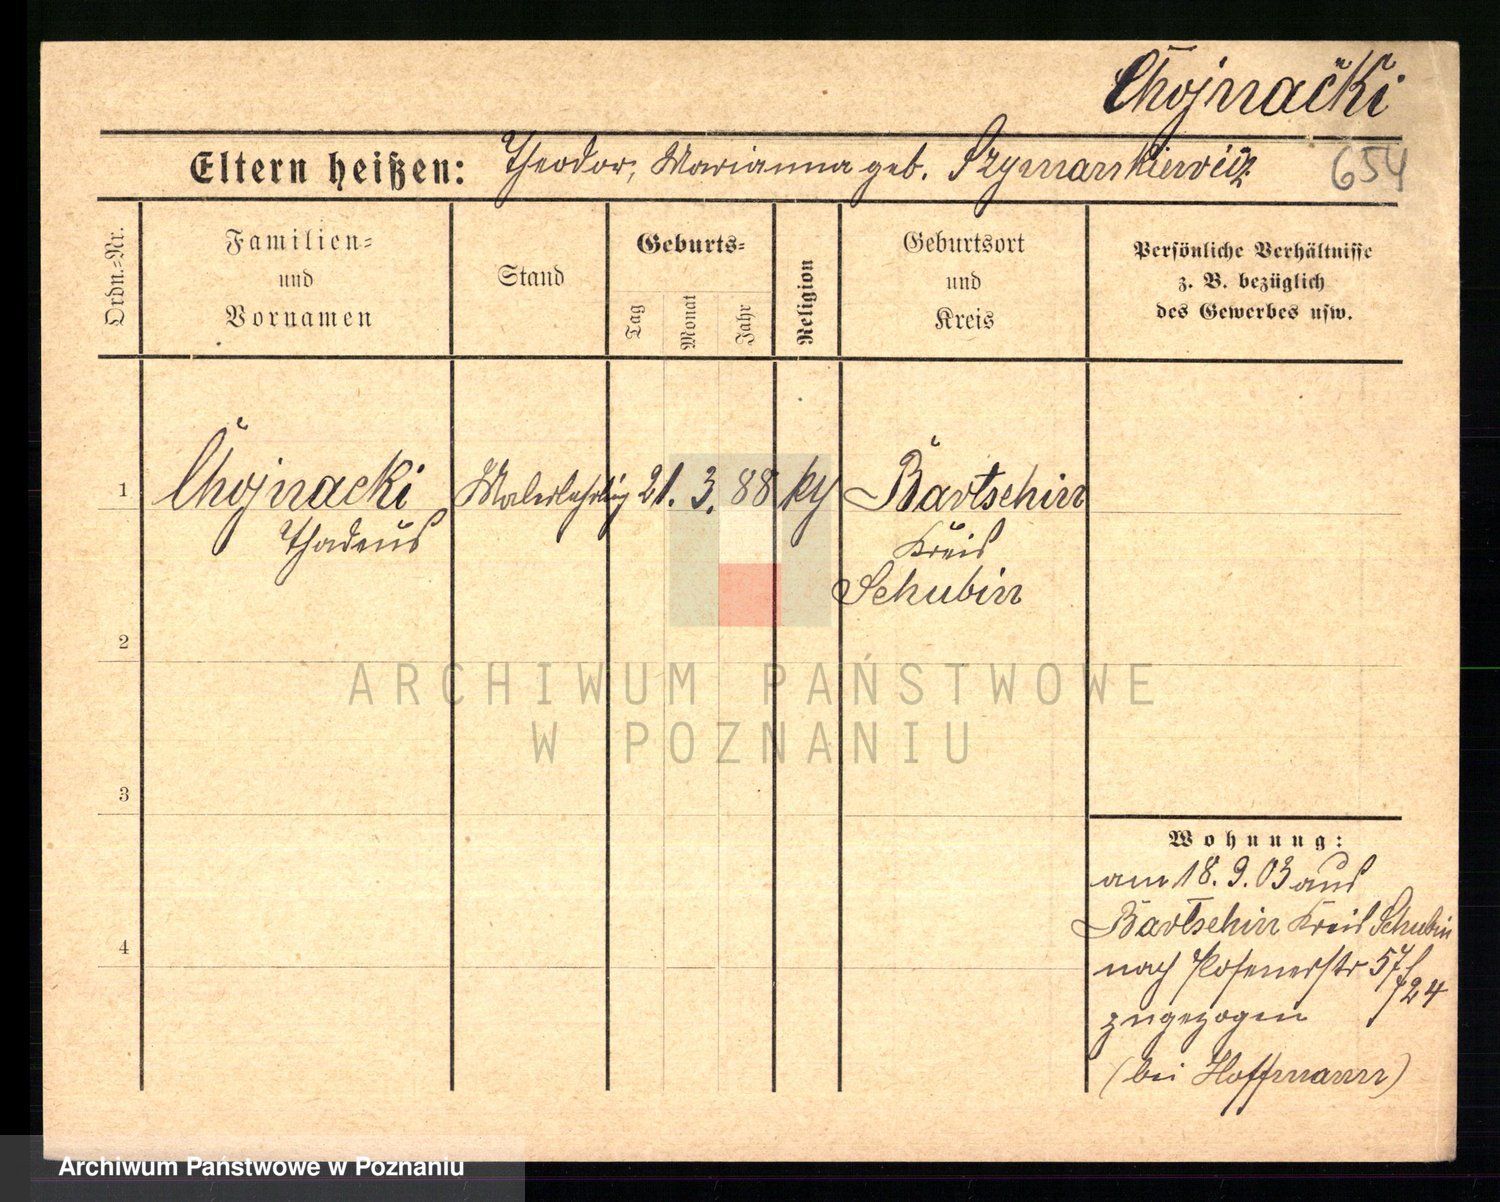 Chojnacki
Eltern heißen: Theodor, Marianna geb. Szymankiewicz 654
Ordn.-Nr.
Familien-
und
Vornamen
Stand
Geburts-
Tag
Monat
Jahr
Religion
Geburtsort
und
Kreis
Persönliche Verhältnisse
z. B. bezüglich
des Gewerbes usw.
1 Chojnacki Malerlehrling 21. 3. 88 ky Bartschin
Thadeus Kreis
Schubin
2
ARCHIWUM PAŃSTWOWE
W POZNANIU
3
Wohnung:
am 18. 9. 03 aus
Bartschin Kreis Schubin
4
nach Posenerstr 57/
24
zugezogen
(bei Hoffmann)
Archiwum Państwowe w Poznaniu